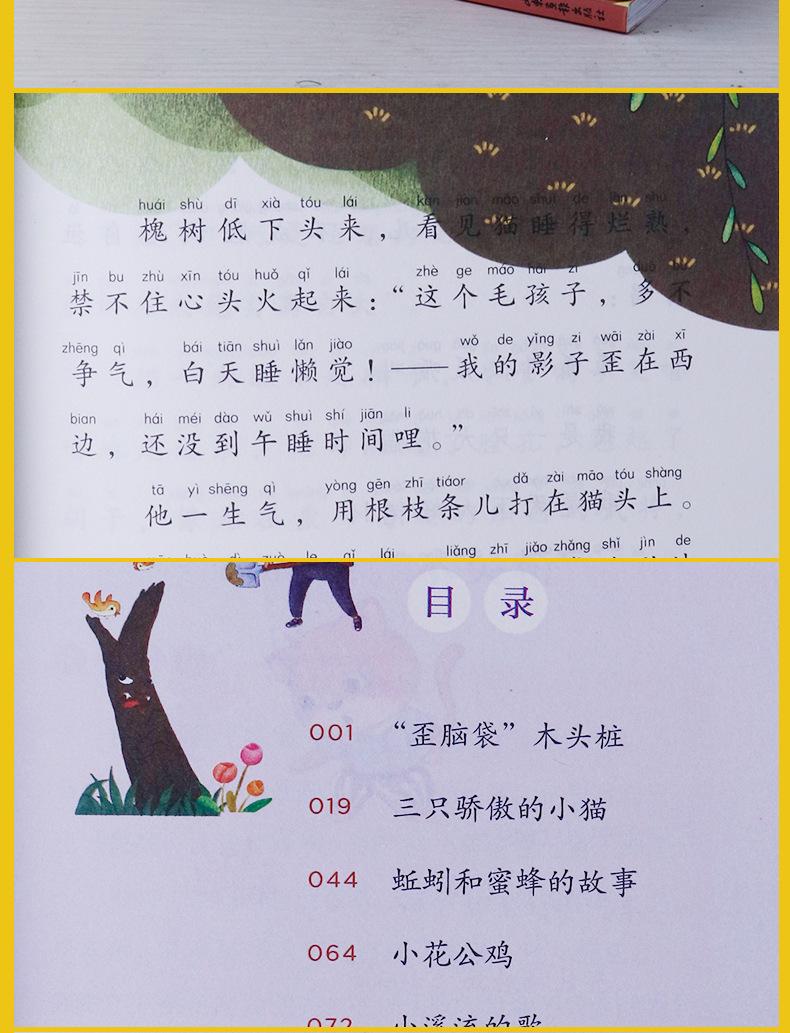 山东画报出版社
huái shù dī xià tóu lái kàn jian māo shuì de làn shú
槐树低下头来，看见猫睡得烂熟，
jīn bu zhù xīn tóu huǒ qǐ lái zhè ge máo hái zi duō bù
禁不住心头火起来：“这个毛孩子，多不
zhēng qì bái tiān shuì lǎn jiào wǒ de yǐng zi wāi zài xī
争气，白天睡懒觉！——我的影子歪在西
bian hái méi dào wǔ shuì shí jiān li
边，还没到午睡时间哩。”
tā yì shēng qì yòng gēn zhī tiáor dǎ zài māo tóu shàng
他一生气，用根枝条儿打在猫头上。
le qǐ lái liǎng zhī jiǎo zhǎng shǐ jìn de
目录
001 “歪脑袋”木头桩
019 三只骄傲的小猫
044 蚯蚓和蜜蜂的故事
064 小花公鸡
072 小溪流的歌